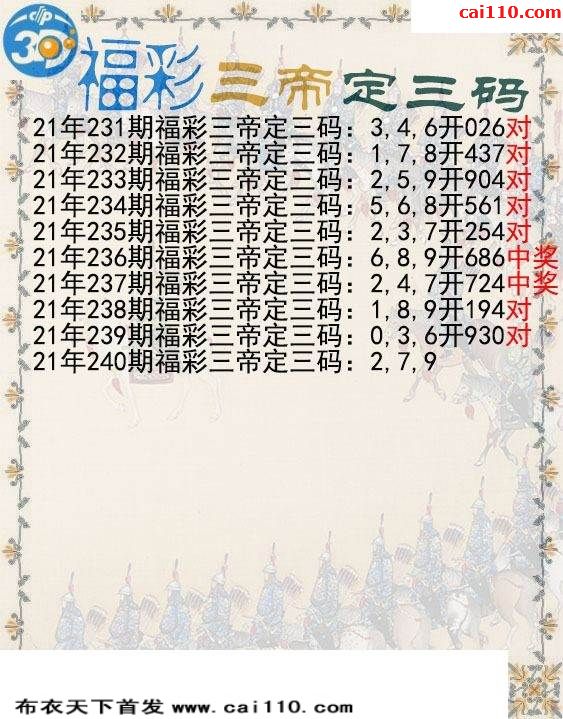 cai110.com
3D
福彩三帝定三码
21年231期福彩三帝定三码：3,4,6开026对
21年232期福彩三帝定三码：1,7,8开437对
21年233期福彩三帝定三码：2,5,9开904对
21年234期福彩三帝定三码：5,6,8开561对
21年235期福彩三帝定三码：2,3,7开254对
21年236期福彩三帝定三码：6,8,9开686中奖
21年237期福彩三帝定三码：2,4,7开724中奖
21年238期福彩三帝定三码：1,8,9开194对
21年239期福彩三帝定三码：0,3,6开930对
21年240期福彩三帝定三码：2,7,9
布衣天下首发 www.cai110.com